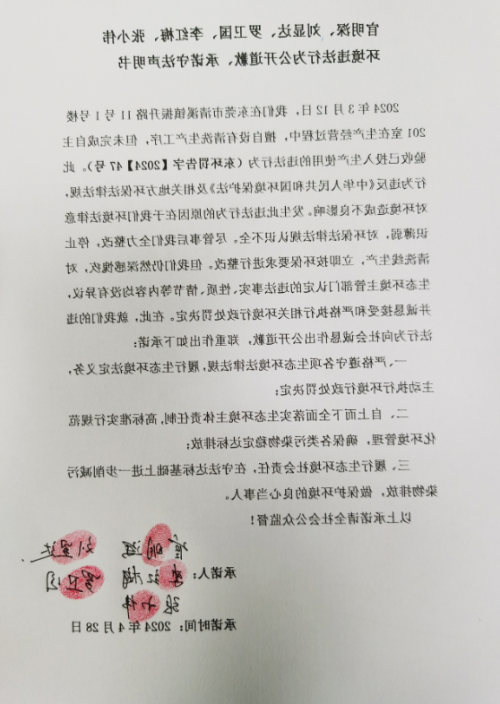 官明深、刘显达、罗卫国、李红梅、张小伟
环境违法行为公开道歉、承诺守法声明书
2024年3月12日，我们在东莞市清溪镇振升路11号1号楼
201室在生产经营过程中，擅自设有清洗生产工序，但未完成自主
验收已投入生产使用的违法行为（东环罚告字【2024】47号）。此
行为违反《中华人民共和国环境保护法》及相关地方环保法律法规，
对环境造成不良影响。发生此违法行为的原因在于我们环境法律意
识薄弱，对环保法律法规认识不全。尽管事后我们全力整改，停止
清洗线生产，立即按环保要求进行整改。但我们仍然深感愧疚，对
生态环境主管部门认定的违法事实、性质、情节等内容均没有异议，
并诚恳接受和严格执行相关环境行政处罚决定。在此，就我们的违
法行为向社会诚恳作出公开道歉，郑重作出如下承诺：
一、严格遵守各项生态环境法律法规，履行生态环境法定义务，
主动执行环境行政处罚决定；
二、自上而下全面落实生态环境主体责任制，高标准实行规范
化环境管理，确保各类污染物稳定达标排放；
三、履行生态环境社会责任，在守法达标基础上进一步削减污
染物排放，做保护环境的良心当事人。
以上承诺请全社会公众监督！
官明深 刘显达
承诺人：李红梅 罗卫国
张小伟
承诺时间：2024年4月28日